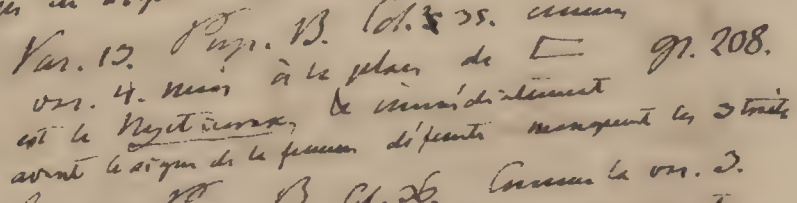 Var. 13. Pap. B. Col. 35. comme
var. 4. mais à la place de gr. 208.
est le Nycticorax, & immédiatement
avant le signe de la femme défunte manquent les 3 traits
B Col. 36. Comme la var. 3.